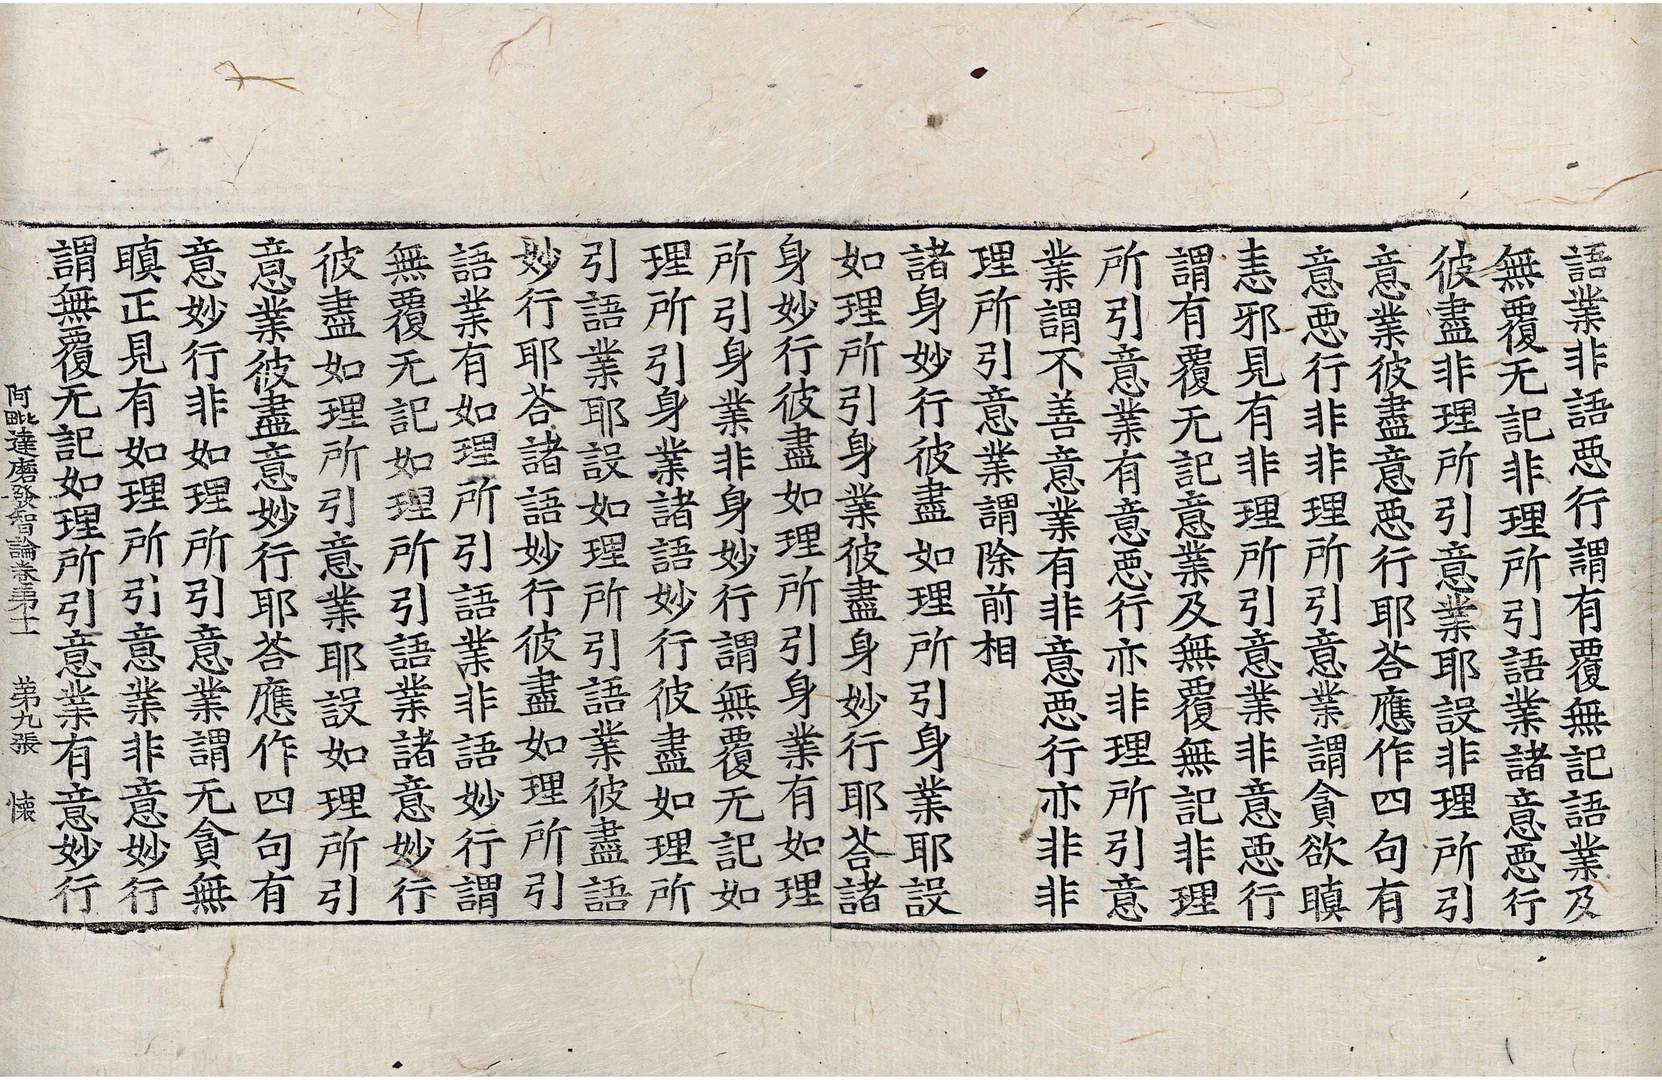 語業非語𢙣行謂有覆無記語業及
無覆无記非理所引語業諸意𢙣行
彼盡非理所引意業耶設非理所引
意業彼盡意𢙣行耶荅應作四句有
意𢙣行非非理所引意業謂貪欲瞋
恚邪見有非理所引意業非意𢙣行
謂有覆无記意業及無覆無記非理
所引意業有意𢙣行亦非理所引意
業謂不善意業有非意𢙣行亦非非
理所引意業謂除前相
諸身妙行彼盡如理所引身業耶設
如理所引身業彼盡身妙行耶荅諸
身妙行彼盡如理所引身業有如理
所引身業非身妙行謂無覆无記如
理所引身業諸語妙行彼盡如理所
引語業耶設如理所引語業彼盡語
妙行耶荅諸語妙行彼盡如理所引
語業有如理所引語業非語妙行謂
無覆无記如理所引語業諸意妙行
彼盡如理所引意業耶設如理所引
意業彼盡意妙行耶荅應作四句有
意妙行非如理所引意業謂无貪無
瞋正見有如理所引意業非意妙行
謂無覆无記如理所引意業有意妙行
阿毗達磨發智論卷第十一 第九張 懷